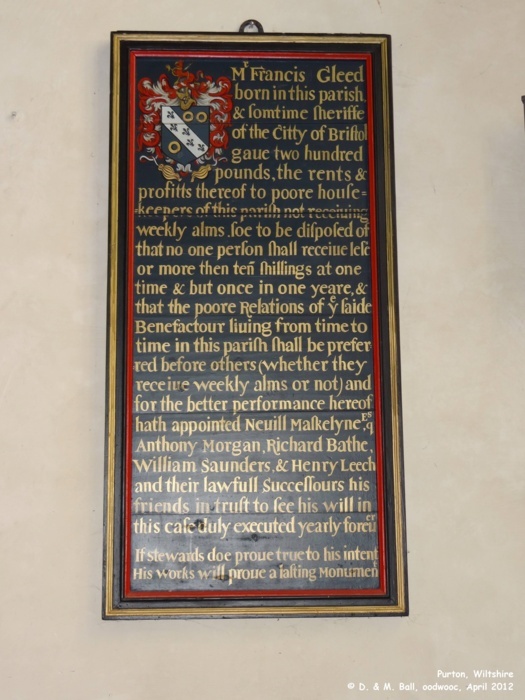 Mʳ Francis Gleed
born in this parish
& ſomtime ſheriffe
of the Citty of Briſtol
gaue two hundred
pounds, the rents &
profitts thereof to poore houſe=
keepers of this pariſh not receiuing
weekly alms, ſoe to be diſpoſed of
that no one perſon ſhall receiue leſſ
or more then teñ ſhillings at one
time & but once in one yeare, &
that the poore Relations of yͤ ſaide
Benefactour liuing from time to
time in this pariſh ſhall be prefer
red before others (whether they
receiue weekly alms or not) and
for the better performance hereof
hath appointed Neuill Maſkelyne Eſq
Anthony Morgan, Richard Bathe,
William Saunders, & Henry Leech
and their lawfull Succeſſours his
friends in truſt to ſee his will in
this caſe duly executed yearly foreuᵉʳ
If stewards doe proue true to his intent
His works will proue a laſting Monumenᵗ
Purton, Wiltshire
© D. & M. Ball, oodwooc, April 2012